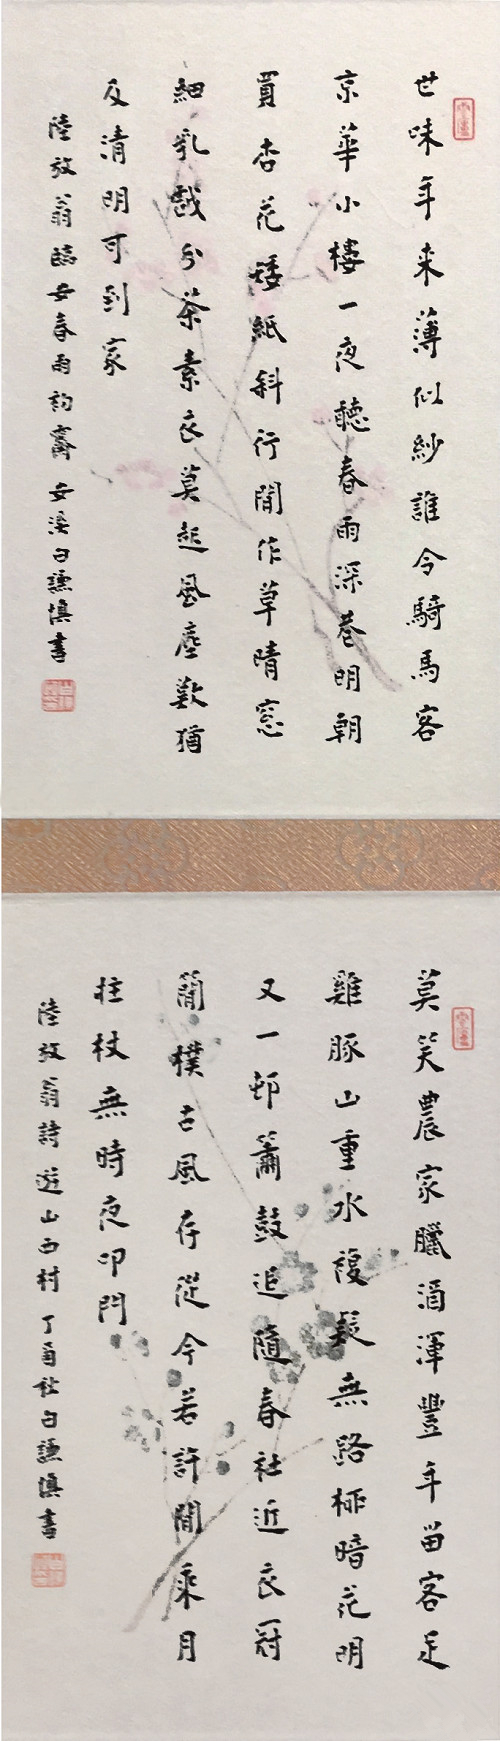 世味年来薄似紗誰令騎馬客
京華小樓一夜聽春雨深巷明朝
買杏花矮紙斜行閒作草晴窓
細乳戲分茶素衣莫起風塵歎猶
及清明可到家
陸放翁臨安春雨初霽 安溪白謙慎書
莫笑農家臘酒渾豐年留客足
雞豚山重水複疑無路柳暗花明
又一邨簫鼓追隨春社近衣冠
簡樸古風存從今若許閒乘月
拄杖無時夜叩門
陸放翁詩遊山西村 丁酉 白謙慎書